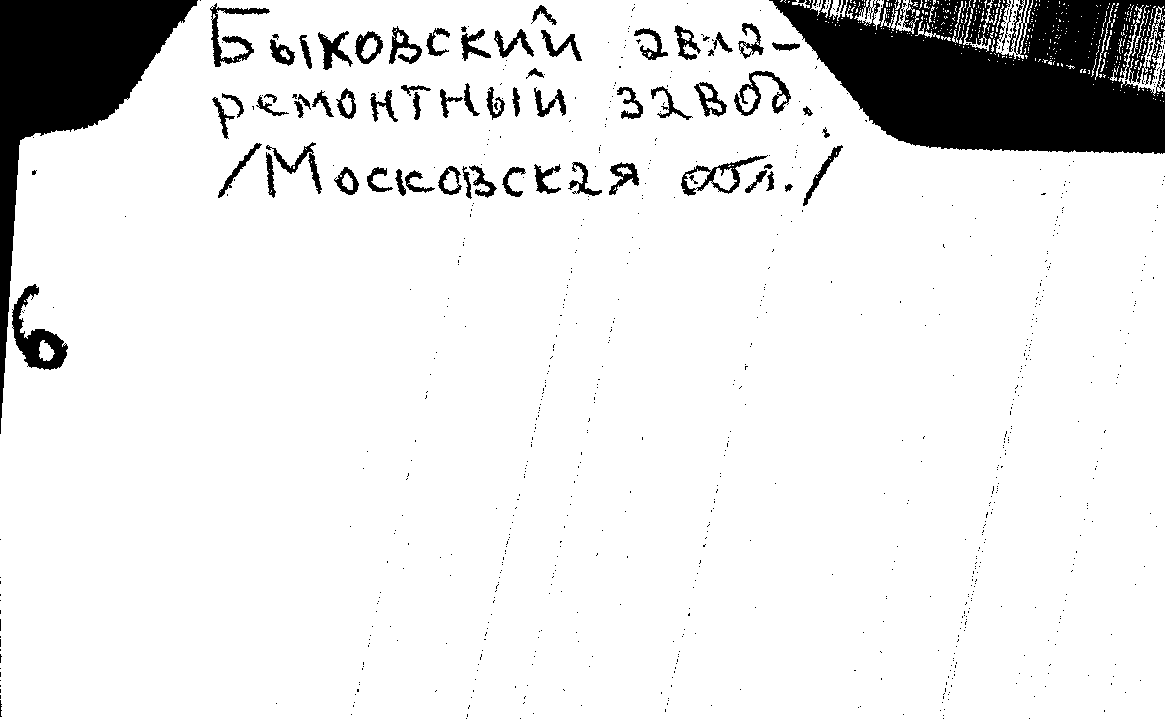 Быковский авиа-
ремонтный завод.
/Московская обл./
6